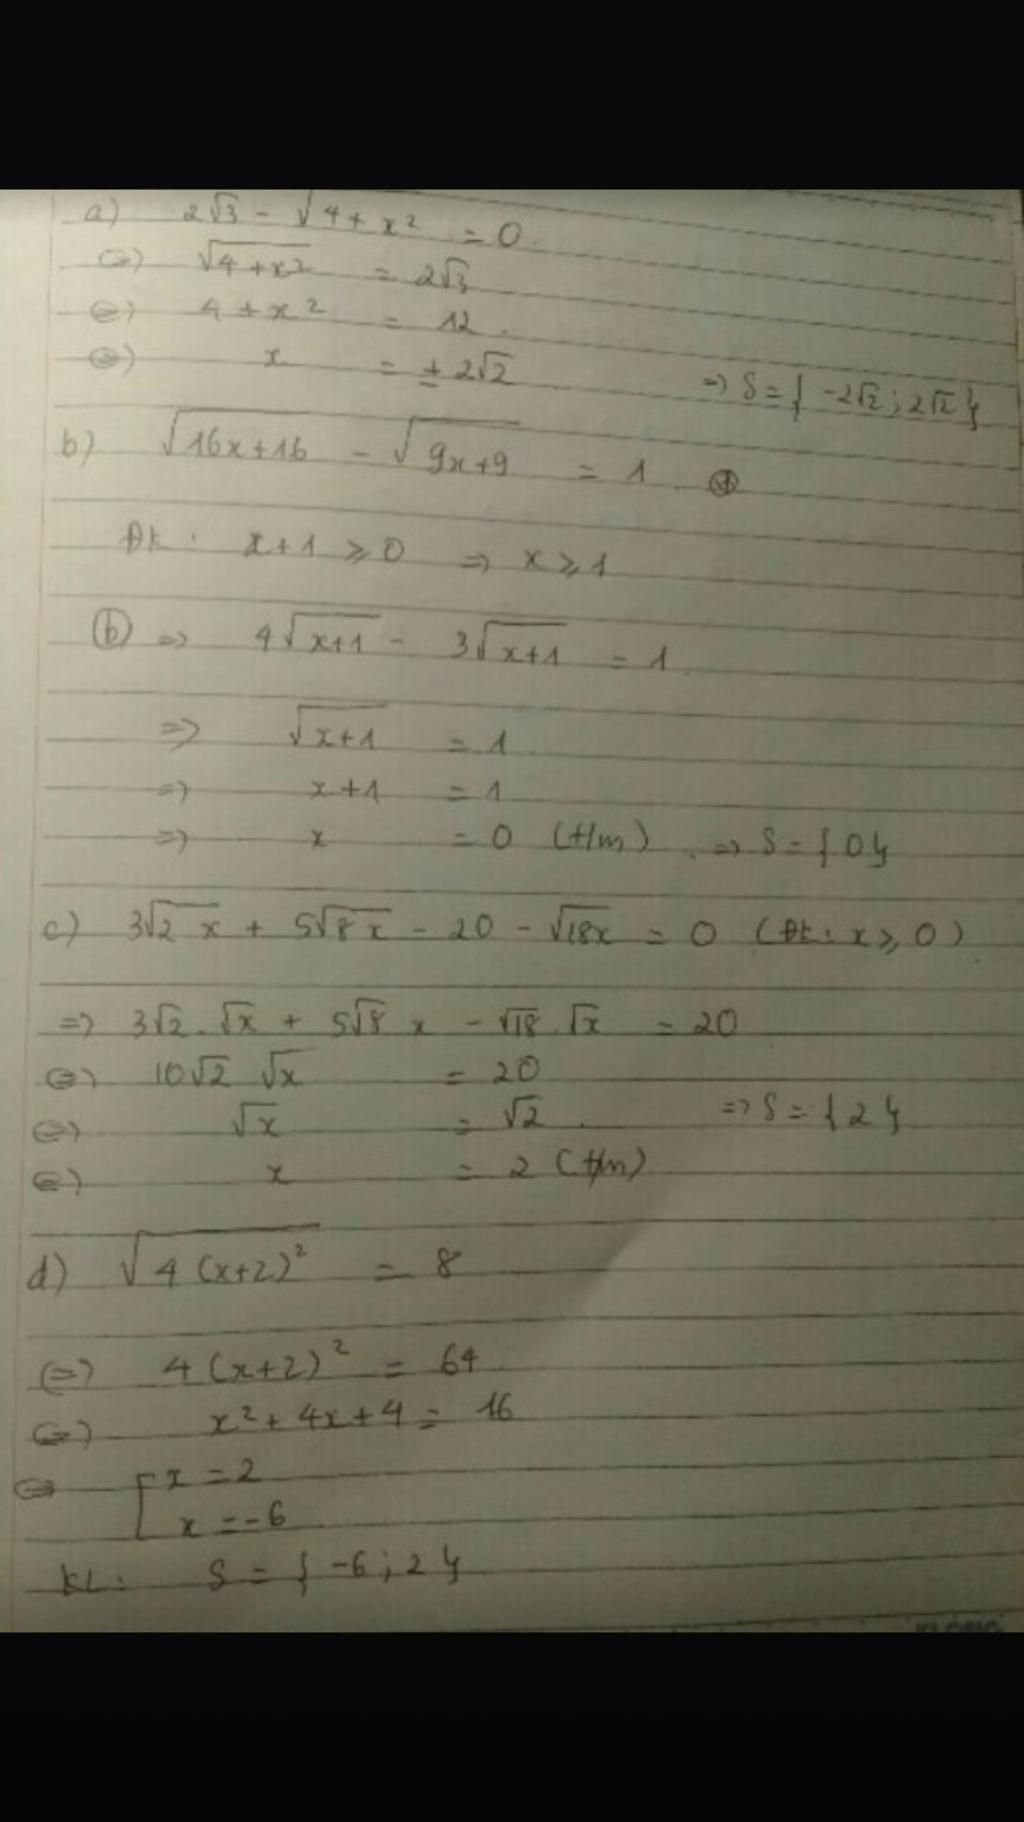 a) 2√3 - √4 + x² = 0
⇔ √4+x² = 2√3
⇔ 4 + x² = 12
⇔ x = ± 2√2 ⇒ S = { -2√2 ; 2√2 }
b) √16x+16 - √9x+9 = 1 ⊛
Đk : x+1 ≥ 0 ⇒ x ≥ 1
(b) ⇒ 4√x+1 - 3√x+1 = 1
⇒ √x+1 = 1
⇒ x+1 = 1
⇒ x = 0 (t/m) ⇒ S = { 0 }
c) 3√2x + 5√8x - 20 - √18x = 0 (Đk : x ≥ 0)
⇒ 3√2 . √x + 5√8 x - √18 . √x = 20
⇔ 10√2 √x = 20
⇔ √x = √2 . ⇒ S = { 2 }
⇔ x = 2 (t/m)
d) √4(x+2)² = 8
⇔ 4(x+2)² = 64
⇔ x² + 4x + 4 = 16
⇔ [ x = 2
x = -6
KL : S = { -6 ; 2 }